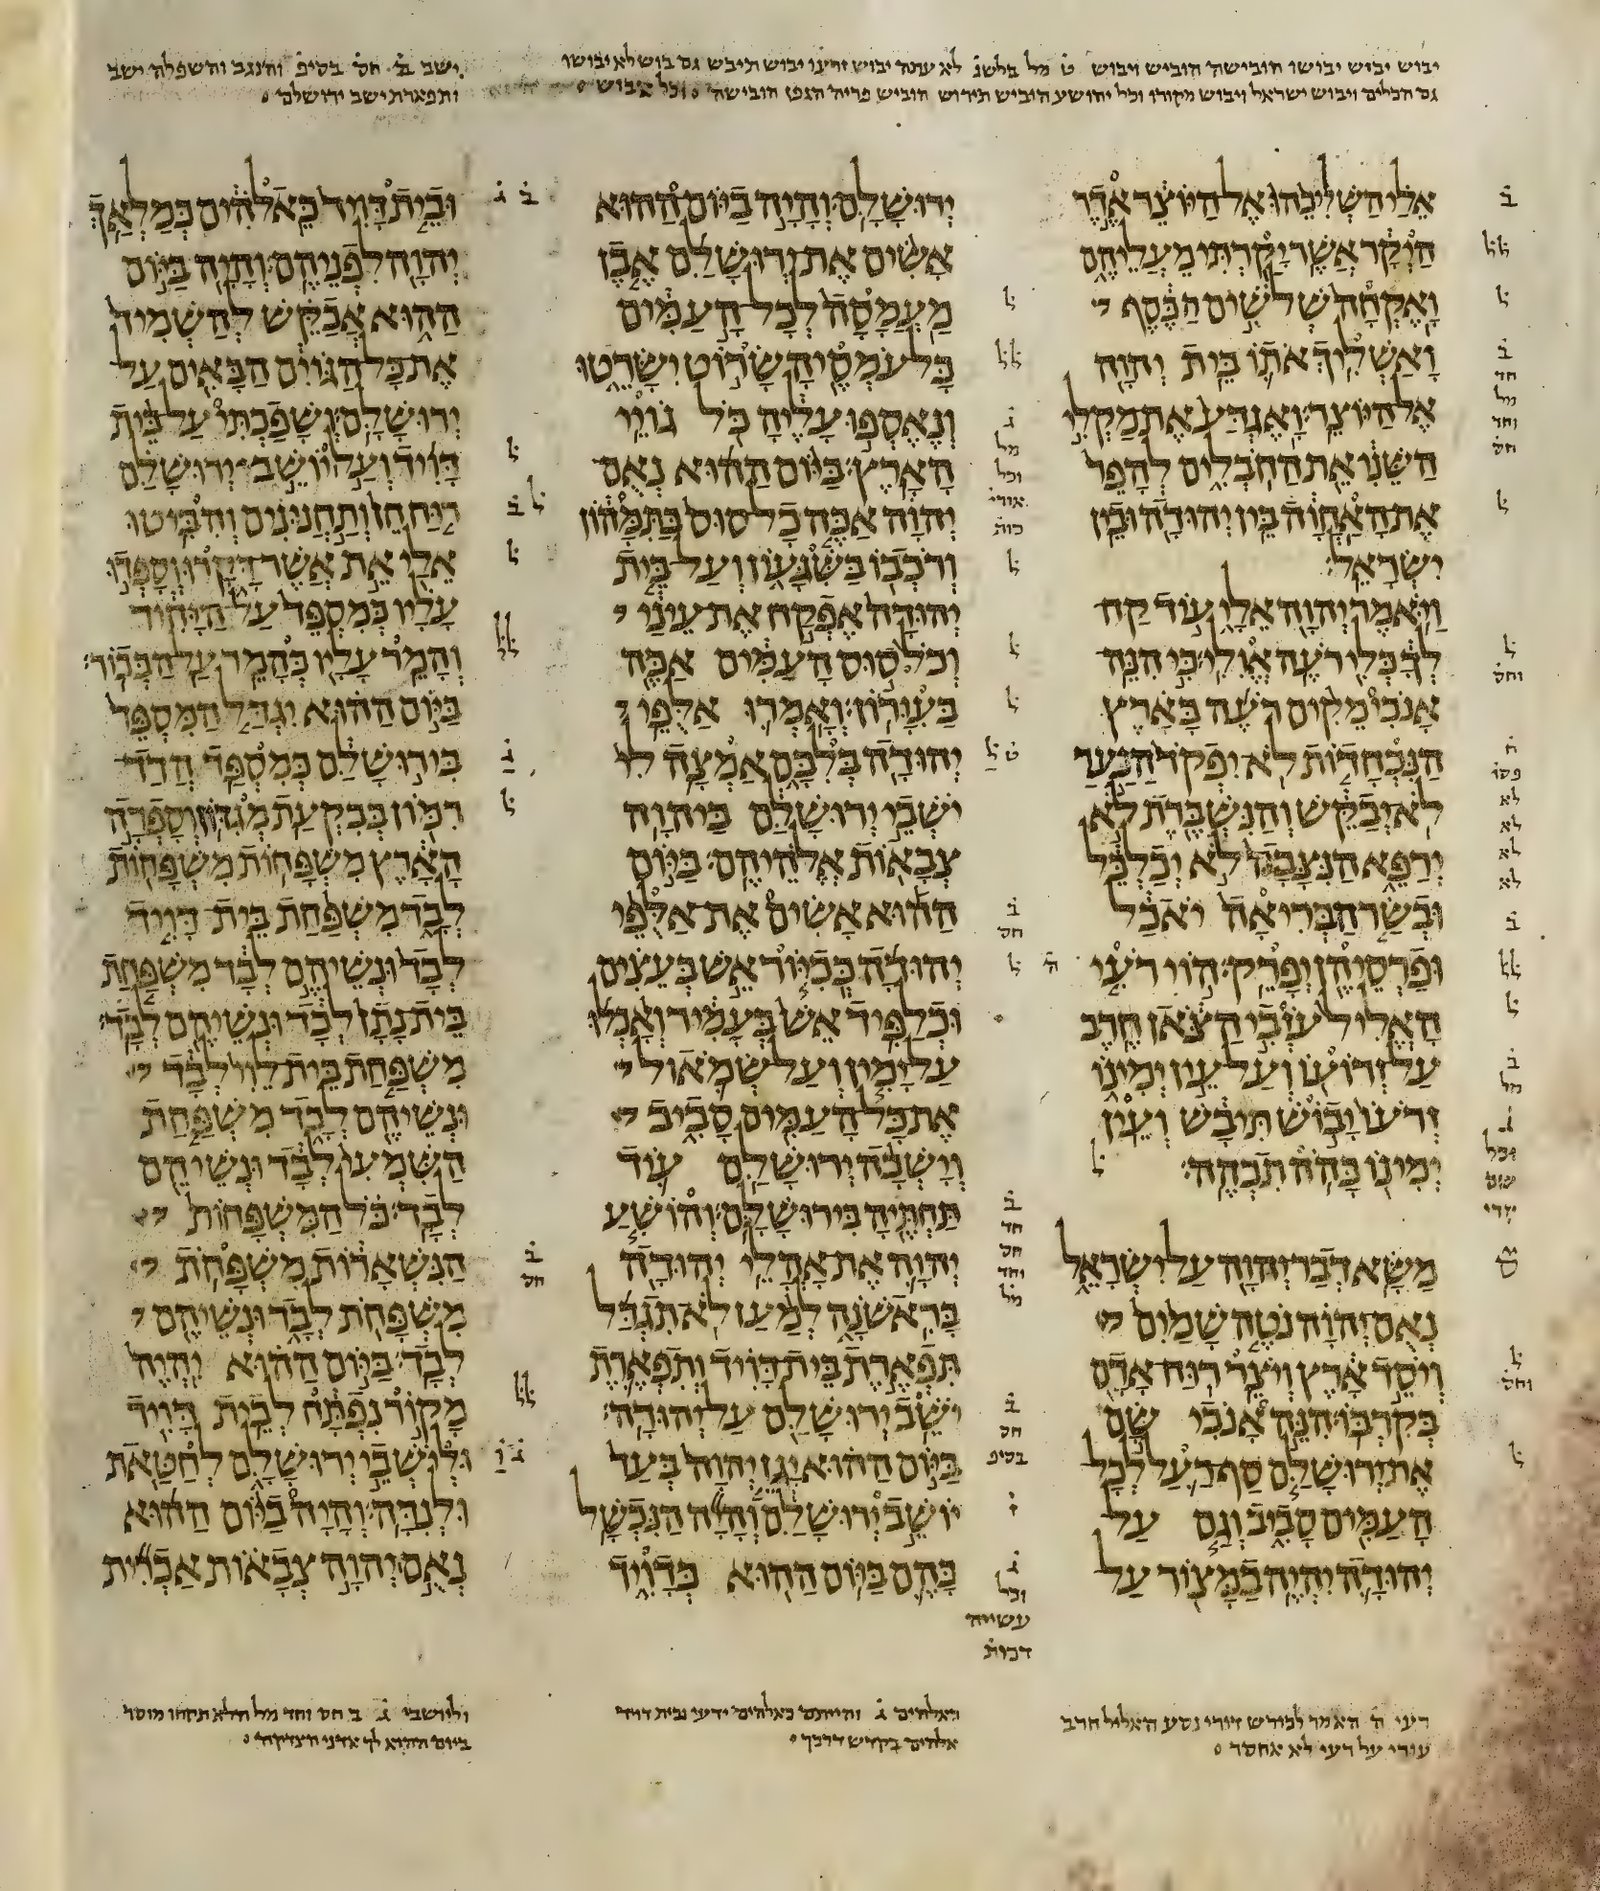 יבוש יביש יבושו חובישה הוביש ויבוש ט מל בלשנ לא ענתה יבוש זרעו יבוש תיבש גם בוש לא יבושו
גם הכלים ויבוש ישראל ויבוש מקורו וכל יהושע הוביש תירוש הוביש פריה הגפן הובישה וכל אבוש
ישב ב חס בסיפ והנגב והשפלה ישב
ותפארת ישב ירושלם
אֵלַי הַשְׁלִיכֵהוּ אֶל הַיּוֹצֵר אֶדֶר
הַיְקָר אֲשֶׁר יָקַרְתִּי מֵעֲלֵיהֶם
וָאֶקְחָה שְׁלֹשִׁים הַכֶּסֶף
וָאַשְׁלִיךְ אֹתוֹ בֵּית יְהוָה
אֶל הַיּוֹצֵר׃ וָאֶגְדַּע אֶת מַקְלִי
הַשֵּׁנִי אֵת הַחֹבְלִים לְהָפֵר
אֶת הָאַחֲוָה בֵּין יְהוּדָה וּבֵין
יִשְׂרָאֵל׃
וַיֹּאמֶר יְהוָה אֵלָי עוֹד קַח
לְךָ כְּלִי רֹעֶה אֱוִלִי׃ כִּי הִנֵּה
אָנֹכִי מֵקִים רֹעֶה בָּאָרֶץ
הַנִּכְחָדוֹת לֹא יִפְקֹד הַנַּעַר
לֹא יְבַקֵּשׁ וְהַנִּשְׁבֶּרֶת לֹא
יְרַפֵּא הַנִּצָּבָה לֹא יְכַלְכֵּל
וּבְשַׂר הַבְּרִיאָה יֹאכַל
וּפַרְסֵיהֶן יְפָרֵק׃ הוֹי רֹעִי
הָאֱלִיל עֹזְבִי הַצֹּאן חֶרֶב
עַל זְרוֹעוֹ וְעַל עֵין יְמִינוֹ
זְרֹעוֹ יָבוֹשׁ תִּיבָשׁ וְעֵין
יְמִינוֹ כָּהֹה תִכְהֶה׃
מַשָּׂא דְבַר יְהוָה עַל יִשְׂרָאֵל
נְאֻם יְהוָה נֹטֶה שָׁמַיִם
וְיֹסֵד אָרֶץ וְיֹצֵר רוּחַ אָדָם
בְּקִרְבּוֹ׃ הִנֵּה אָנֹכִי שָׂם
אֶת יְרוּשָׁלִַם סַף רַעַל לְכָל
הָעַמִּים סָבִיב וְגַם עַל
יְהוּדָה יִהְיֶה בַמָּצוֹר עַל
יְרוּשָׁלִָם׃ וְהָיָה בַיּוֹם הַהוּא
אָשִׂים אֶת יְרוּשָׁלִַם אֶבֶן
מַעֲמָסָה לְכָל הָעַמִּים
כָּל עֹמְסֶיהָ שָׂרוֹט יִשָּׂרֵטוּ
וְנֶאֶסְפוּ עָלֶיהָ כֹּל גּוֹיֵי
הָאָרֶץ׃ בַּיּוֹם הַהוּא נְאֻם
יְהוָה אַכֶּה כָל סוּס בַּתִּמָּהוֹן
וְרֹכְבוֹ בַּשִּׁגָּעוֹן וְעַל בֵּית
יְהוּדָה אֶפְקַח אֶת עֵינַי
וְכֹל סוּס הָעַמִּים אַכֶּה
בַּעִוָּרוֹן׃ וְאָמְרוּ אַלֻּפֵי
יְהוּדָה בְּלִבָּם אַמְצָה לִי
יֹשְׁבֵי יְרוּשָׁלִַם בַּיהוָה
צְבָאוֹת אֱלֹהֵיהֶם׃ בַּיּוֹם
הַהוּא אָשִׂים אֶת אַלֻּפֵי
יְהוּדָה כְּכִיּוֹר אֵשׁ בְּעֵצִים
וּכְלַפִּיד אֵשׁ בְּעָמִיר וְאָכְלוּ
עַל יָמִין וְעַל שְׂמֹאול
אֶת כָּל הָעַמִּים סָבִיב
וְיָשְׁבָה יְרוּשָׁלִַם עוֹד
תַּחְתֶּיהָ בִּירוּשָׁלִָם׃ וְהוֹשִׁעַ
יְהוָה אֶת אָהֳלֵי יְהוּדָה
בָּרִאשֹׁנָה לְמַעַן לֹא תִגְדַּל
תִּפְאֶרֶת בֵּית דָּוִיד וְתִפְאֶרֶת
יֹשֵׁב יְרוּשָׁלִַם עַל יְהוּדָה׃
בַּיּוֹם הַהוּא יָגֵן יְהוָה בְּעַד
יוֹשֵׁב יְרוּשָׁלִַם וְהָיָה הַנִּכְשָׁל
בָּהֶם בַּיּוֹם הַהוּא כְּדָוִיד
וּבֵית דָּוִיד כֵּאלֹהִים כְּמַלְאַךְ
יְהוָה לִפְנֵיהֶם׃ וְהָיָה בַּיּוֹם
הַהוּא אֲבַקֵּשׁ לְהַשְׁמִיד
אֶת כָּל הַגּוֹיִם הַבָּאִים עַל
יְרוּשָׁלִָם׃ וְשָׁפַכְתִּי עַל בֵּית
דָּוִיד וְעַל יוֹשֵׁב יְרוּשָׁלִַם
רוּחַ חֵן וְתַחֲנוּנִים וְהִבִּיטוּ
אֵלַי אֵת אֲשֶׁר דָּקָרוּ וְסָפְדוּ
עָלָיו כְּמִסְפֵּד עַל הַיָּחִיד
וְהָמֵר עָלָיו כְּהָמֵר עַל הַבְּכוֹר׃
בַּיּוֹם הַהוּא יִגְדַּל הַמִּסְפֵּד
בִּירוּשָׁלִַם כְּמִסְפַּד הֲדַד
רִמּוֹן בְּבִקְעַת מְגִדּוֹן׃ וְסָפְדָה
הָאָרֶץ מִשְׁפָּחוֹת מִשְׁפָּחוֹת
לְבָד מִשְׁפַּחַת בֵּית דָּוִיד
לְבָד וּנְשֵׁיהֶם לְבָד מִשְׁפַּחַת
בֵּית נָתָן לְבָד וּנְשֵׁיהֶם לְבָד׃
מִשְׁפַּחַת בֵּית לֵוִי לְבָד
וּנְשֵׁיהֶם לְבָד מִשְׁפַּחַת
הַשִּׁמְעִי לְבָד וּנְשֵׁיהֶם
לְבָד׃ כֹּל הַמִּשְׁפָּחוֹת
הַנִּשְׁאָרוֹת מִשְׁפָּחֹת
מִשְׁפָּחֹת לְבָד וּנְשֵׁיהֶם
לְבָד׃ בַּיּוֹם הַהוּא יִהְיֶה
מָקוֹר נִפְתָּח לְבֵית דָּוִיד
וּלְיֹשְׁבֵי יְרוּשָׁלִָם לְחַטַּאת
וּלְנִדָּה׃ וְהָיָה בַיּוֹם הַהוּא
נְאֻם יְהוָה צְבָאוֹת אַכְרִית
רעי ה האמר לכורש זיורי נסע האליל חרב
עורי על רעי לא אחסר
כאלהים ג והייתם כאלהים ידעי ובית דויד
אלהים בקדש דרכך
וליושבי ג ב חס וחד מל הלא תקחו מוסר
ביום ההוא לך אדני הצדקה